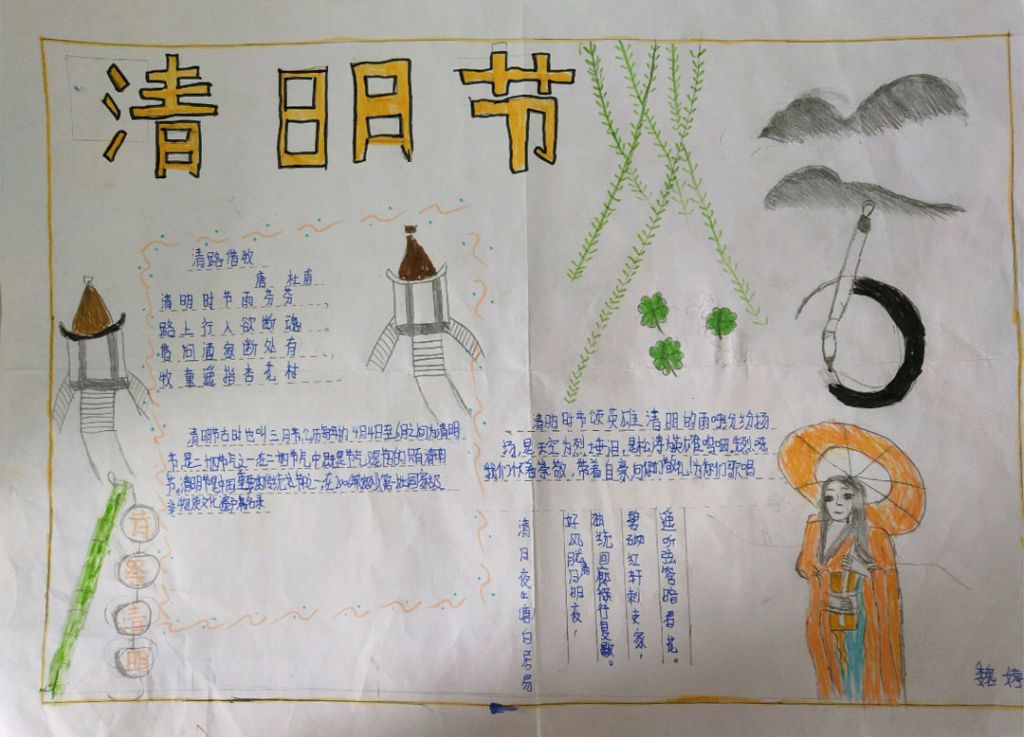 清明节
清路借牧
唐 杜甫
清明时节雨纷芬，
路上行人欲断魂。
借问酒家断处有、
牧童遥指杏花村
清明节古时也叫三月节,公历每年的4月4日至6日之间为清明
节,是二十四节气之一在二十四节气中既是节气又是节日的只有清明
节。清明节是中国重要的传统节日之一在2006年被列入第一批国家级
非物质文化遗产名录
清明时节颂英雄,清明的雨呀纷纷扬
扬,是天空为烈士垂泪,是松涛为英雄呜咽,先烈呀
我们怀着崇敬,带着自豪,向你们敬礼!为你们歌唱
清日夜（唐白居易
好风胧月清明夜，
碧砌红轩刺史家，
独绕回廊行复歇。
遥听弦管暗看花。
清明
魏婷